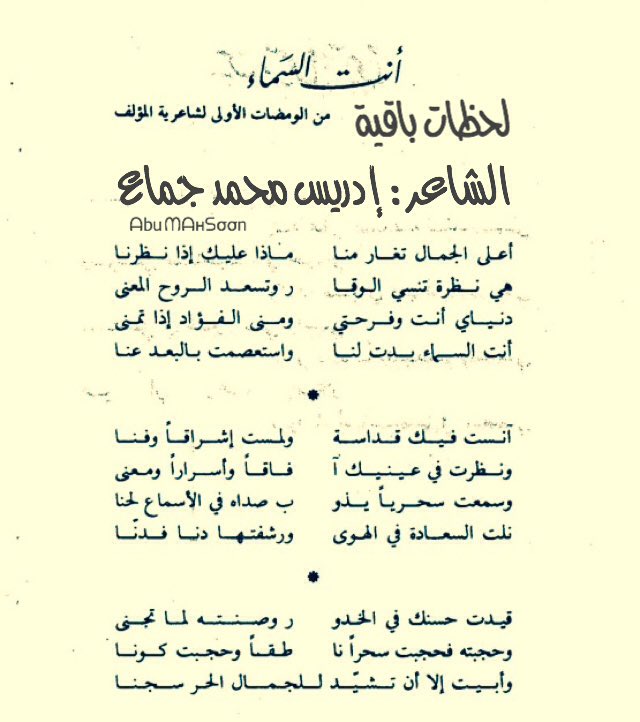 أنت السَماء
لحظات باقية
من الومضات الأولى لشاعرية المؤلف
الشاعر : إدريس محمد جماع
AbuMAHSoon
أعلى الجمال تغار منا ماذا عليك إذا نظرنا
هي نظرة تنسي الوقا ر وتسعد الروح المعنى
دنياي أنت وفرحتي ومنى الفؤاد إذا تمنى
أنت السماء بدت لنا واستعصمت بالبعد عنا
آنست فيك قداسة ولمست إشراقاً وفنا
ونظرت في عينيك آ فاقاً وأسراراً ومعنى
وسمعت سحرياً يذو ب صداه في الأسماع لحنا
نلت السعادة في الهوى ورشفتها دنا فدنّا
قيدت حسنك في الخدو ر وصنته لما تجنى
وحجبته فحجبت سحراً نا طقاً وحجبت كونا
وأبيت إلا أن تشيّد للجمال الحر سجنا